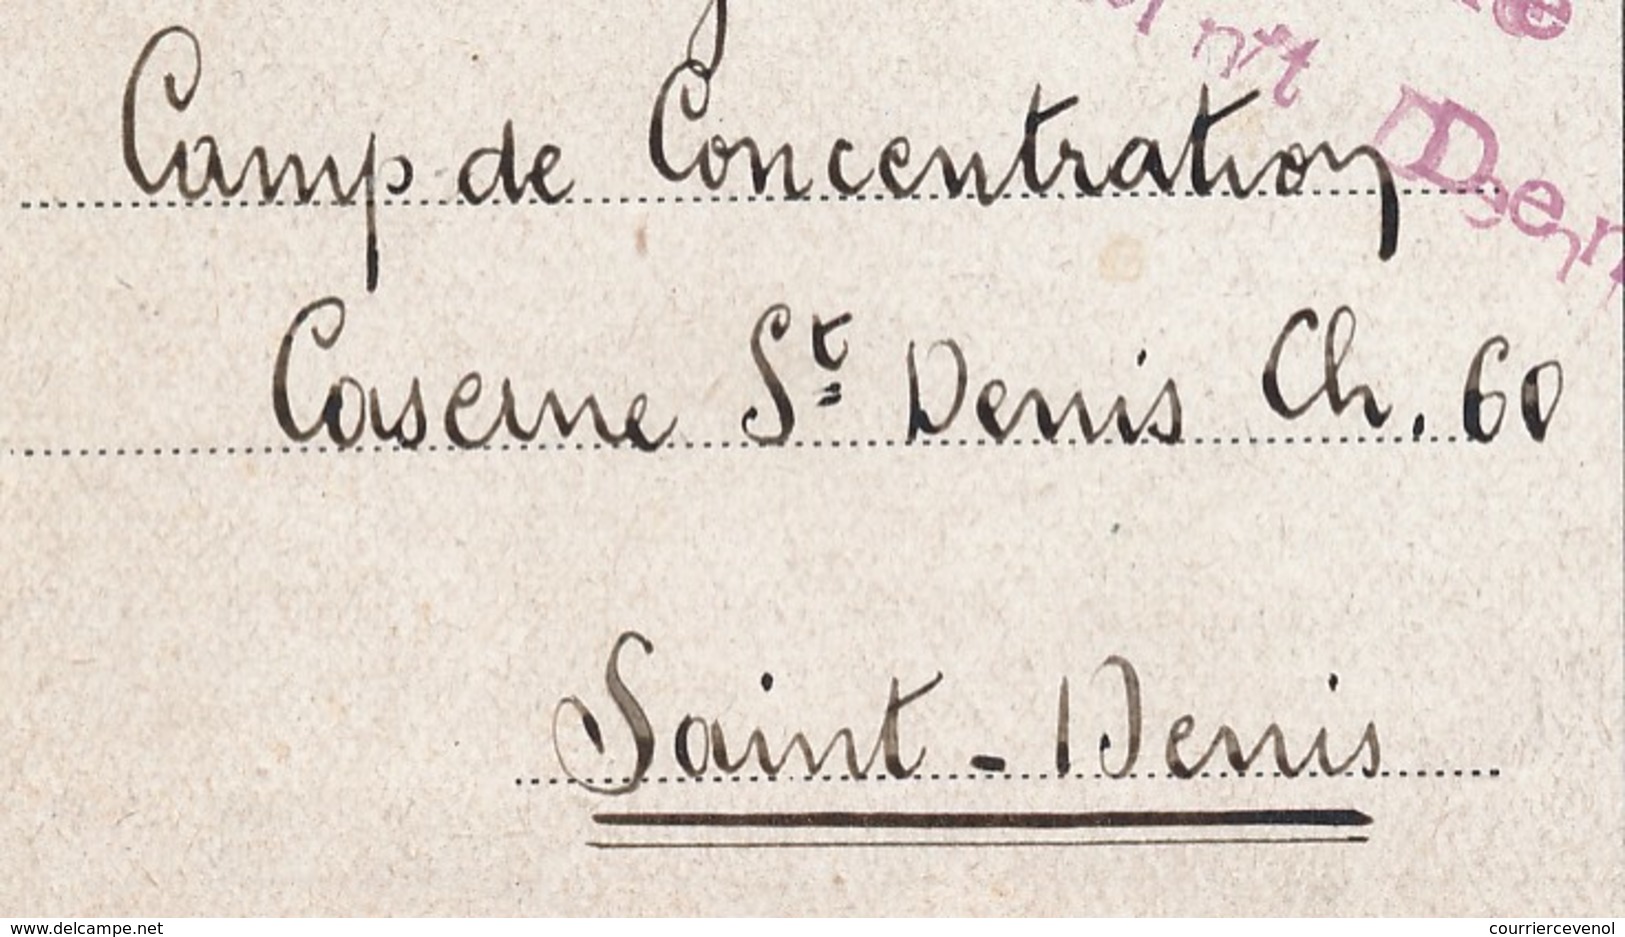 Camp de Concentration
Caserne St Denis Ch. 60
Saint-Denis
www.delcampe.net
courriercevenol